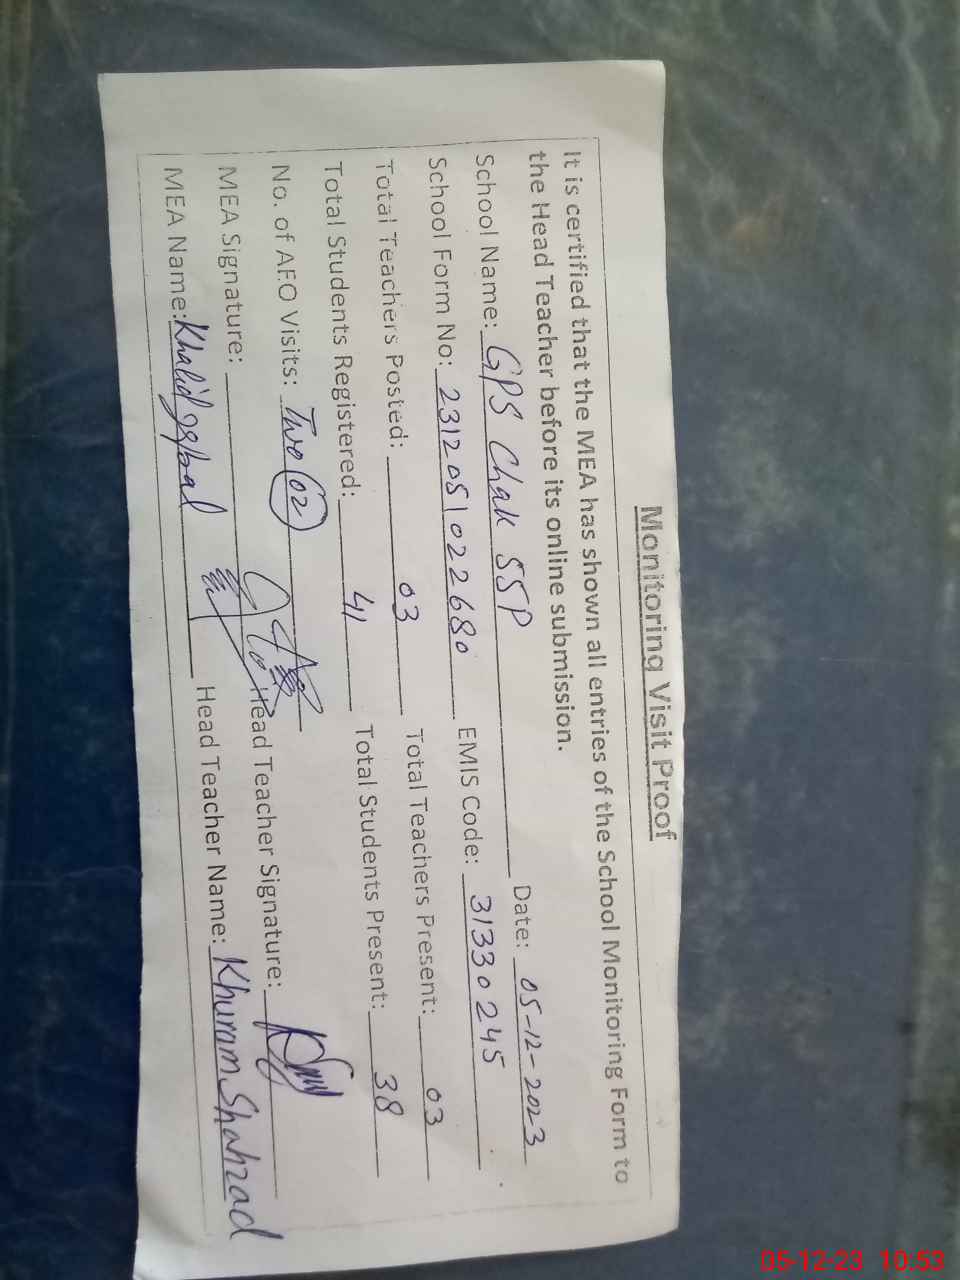 Monitoring Visit Proof
It is certified that the MEA has shown all entries of the School Monitoring Form to
the Head Teacher before its online submission.
School Name: GPS Chak 55P Date: 05-12-2023
School Form No: 2312051022680 EMIS Code: 31330245
Total Teachers Posted: 03 Total Teachers Present: 03
Total Students Registered: 41 Total Students Present: 38
No. of AEO Visits: Two 02
MEA Signature: Head Teacher Signature:
MEA Name: Khalid Iqbal Head Teacher Name: Khuram Shahzad
05-12-23 10:53